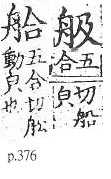 䑥五合切船皃
䑪五合切舩動皃也
p.376